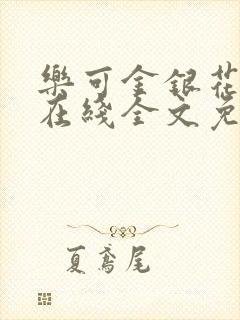 樂可金銀花
在綫全文免
夏鳶尾